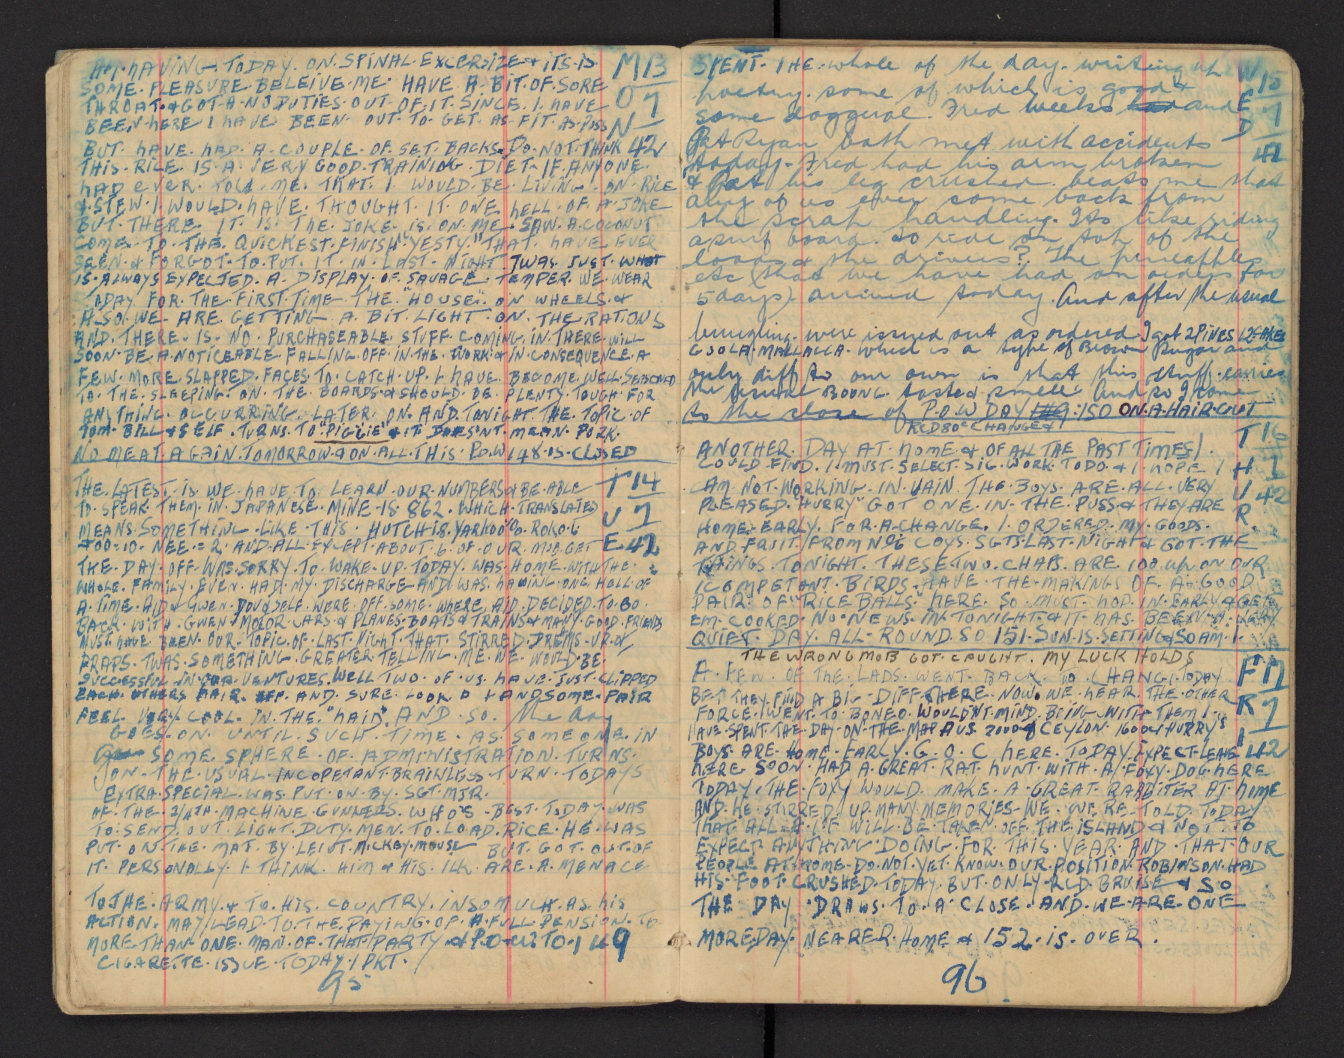 AM HAVING TODAY. ON. SPINAL. EXCERSIZE & ITS IS
M 13
SOME. PLEASURE BELEIVE ME HAVE A. BIT. OF. SORE
THROAT. & GOT. A. NO DUTIES. OUT OF. IT. SINCE. I. HAVE
O 7
BEEN HERE I HAVE BEEN OUT. TO. GET. AS FIT. AS. POSS
N
BUT HAVE HAD A COUPLE OF SET. BACKS. DO. NOT. THINK
42
THIS. RICE IS A VERY GOOD. TRAINING. DIET. IF. ANYONE
HAD EVER. TOLD. ME. THAT. I WOULD. BE. LIVING. ON RICE
& STEW. I WOULD. HAVE. THOUGHT IT ONE HELL OF A JOKE
BUT. THERE IT. IS THE JOKE IS. ON ME. SAW. A. COCONUT
COME. TO THE QUICKEST. FINISH "YESTY." THAT HAVE EVER
SEEN. & FORGOT. TO. PUT. IT IN. LAST. NIGHT TWAS JUST WHAT
IS. ALWAYS EXPECTED. A DISPLAY. OF. SAVAGE TEMPER WE WEAR
TODAY FOR THE FIRST TIME THE "HOUSE. ON WHEELS. &
ALSO. WE ARE GETTING A BIT. LIGHT ON THE RATIONS
AND. THERE. IS. NO PURCHASEABLE STUFF COMING. IN. THERE WILL
SOON BE A NOTICEABLE FALLING OFF IN. THE. WORK & IN. CONSEQUENCE. A
FEW MORE SLAPPED. FACES TO CATCH. UP. I HAVE BECOME WELL. SEASONED
TO. THE. SLEEPING. ON. THE BOARDS. & SHOULD. BE. PLENTY. TOUGH. FOR
ANYTHING. OCCURRING LATER ON. AND. TONIGHT THE TOPIC OF
TOM. BILL. & SELF. TURNS TO "PIGGIE" & IT DOESNT MEAN PORK
NO MEAT AGAIN. TOMORROW & ON. ALL. THIS P.O.W 148. IS CLOSED
THE. LATEST. IS WE HAVE TO LEARN. OUR. NUMBERS & BE ABLE
T 14
TO SPEAK. THEM. IN. JAPANESE. MINE. IS. 862. WHICH. TRANSLATED
MEANS SOMETHING LIKE THIS
U 7
AND ALL EXCEPT ABOUT 6. OF. OUR MOB GET
E. 42
THE DAY OFF WAS SORRY TO WAKE UP TODAY. WAS HOME. WITH. THE
WHOLE. FAMILY EVEN HAD MY DISCHARGE AND I WAS HAVING ONE HELL OF
A. TIME. AID & GWEN. DOUG SELF. WERE OFF. SOME. WHERE, AID. DECIDED TO GO
BACK. WITH. GWEN. MOTOR CARS & PLANES. BOATS & TRAINS & MANY. GOOD FRIENDS
MUST HAVE BEEN OUR TOPIC OF. LAST. NIGHT THAT STIRRED. DREMS. UP. OR
PRAPS. TWAS SOMETHING. GREATER TELLING. ME. WE WOULD. BE.
SUCCESSFUL IN OUR VENTURES. WELL TWO OF US HAVE JUST CLIPPED
EACH OTHERS HAIR OFF AND SURE LOOK A HANDSOME PAIR
FEEL VERY COOL. IN. THE. "HAID". AND. SO. The day
GOES ON UNTIL. SUCH TIME AS. SOMEONE IN
SOME SPHERE OF ADMINISTRATION TURNS
ON. THE USUAL INCOPETANT BRAINLESS TURN TODAYS
EXTRA SPECIAL WAS PUT ON BY SGT MJR.
OF THE 2/4TH MACHINE GUNNERS. WHO'S BEST. TODAY WAS
TO SEND OUT LIGHT DUTY MEN TO LOAD. RICE. HE WAS
PUT ON THE MAT BY LEIUT MICKEY MOUSE BUT GOT OUT OF
IT. PERSONOLLY I THINK HIM & HIS. ILK ARE. A. MENACE
TO THE. ARMY. & TO HIS COUNTRY. INSOMUCH AS HIS
ACTION. MAY LEAD TO THE PAYING. OF A FULL PENSION TO
MORE THAN ONE MAN. OF. THAT PARTY & P.O.W. TO. 149
CIGARETTE. ISSUE TODAY. 1 PKT.
95
SPENT. THE whole of the day. writing up
W 15
poetry. some of which is good &
E 7
some doggerel. Fred Weeks and
D
Pat Ryan both met with accidents
42
today. Fred had his arm broken
& Pat his leg crushed. beats me that
any of us ever come back from
the scrap handling. Its like riding
a surf board. to ride on top of the
loads & the drivers? The pineapples
etc (that we have had on order for
5 days) arrived today. And after the usual
bungling were issued out as ordered I got 2 PINES
GOOLA MALLACCA which is a type of Brown Sugar and
only diff to our own is that this stuff carries
the BOONG taste & smell And so I come
to the close of P.O.W DAY 150 ON. A. HAIR. CUT
ANOTHER DAY AT HOME & OF ALL THE PAST TIMES I
T 16
COULD FIND. I MUST. SELECT. SIG. WORK TODO & I HOPE I
H 7
AM NOT WORKING IN VAIN THE BOYS ARE ALL VERY
U 42
PLEASED. "HURRY" GOT ONE. IN. THE PUSS. & THEY ARE
R
HOME. EARLY FOR. A. CHANGE. I ORDERED MY. GOODS.
AND. FRUIT. FROM NO6 COYS. SGTS. LAST. NIGHT & GOT THE
THINGS TONIGHT THESE TWO CHAPS ARE 100 UP ON OUR
COMPETANT BIRDS. HAVE THE. MAKINGS OF. A GOOD
PAIR. OF RICE BALLS HERE. SO MUST HOP. IN. EARLY & GET
EM COOKED NO. NEWS. IN TONIGHT & IT HAS BEEN. A VERY
QUIET DAY ALL ROUND. SO 151. SUN. IS. SETTING & SO AM. I
THE WRONG MOB GOT CAUGHT. MY LUCK HOLDS
A FEW OF THE LADS WENT BACK TO CHANGI TODAY
F 17
BET THEY FIND A BIG DIFF THERE NOW. WE HEAR THE OTHER
R 7
FORCE WENT TO BONEO WOULDNT MIND BEING WITH THEM I
HAVE SPENT THE. DAY ON THE MAP AUS 2000 & CEYLON 1600. "HURRY'S
I 42
BOYS ARE HOME EARLY G.O.C HERE TODAY EXPECT LEAVE
HERE SOON HAD A GREAT. RAT HUNT WITH A FOXY DOG HERE
TODAY. THE FOXY WOULD MAKE A GREAT RABBITER AT HOME
AND. HE STIRRED UP MANY MEMORIES. WE WERE TOLD TODAY
THAT ALL A.I.F WILL. BE. TAKEN OFF. THE ISLAND & NOT TO
EXPECT ANYTHING DOING FOR THIS YEAR AND. THAT OUR
PEOPLE AT HOME DO. NOT. YET KNOW. OUR POSITION ROBINSON HAD
HIS FOOT. CRUSHED TODAY BUT ONLY BRUISE & SO
THE DAY DRAWS TO A CLOSE. AND. WE. ARE. ONE
MORE DAY NEARER HOME & 152. IS. OVER.
96